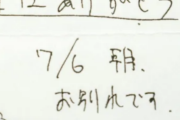 ありがとう
7/6 朝、
お別れです